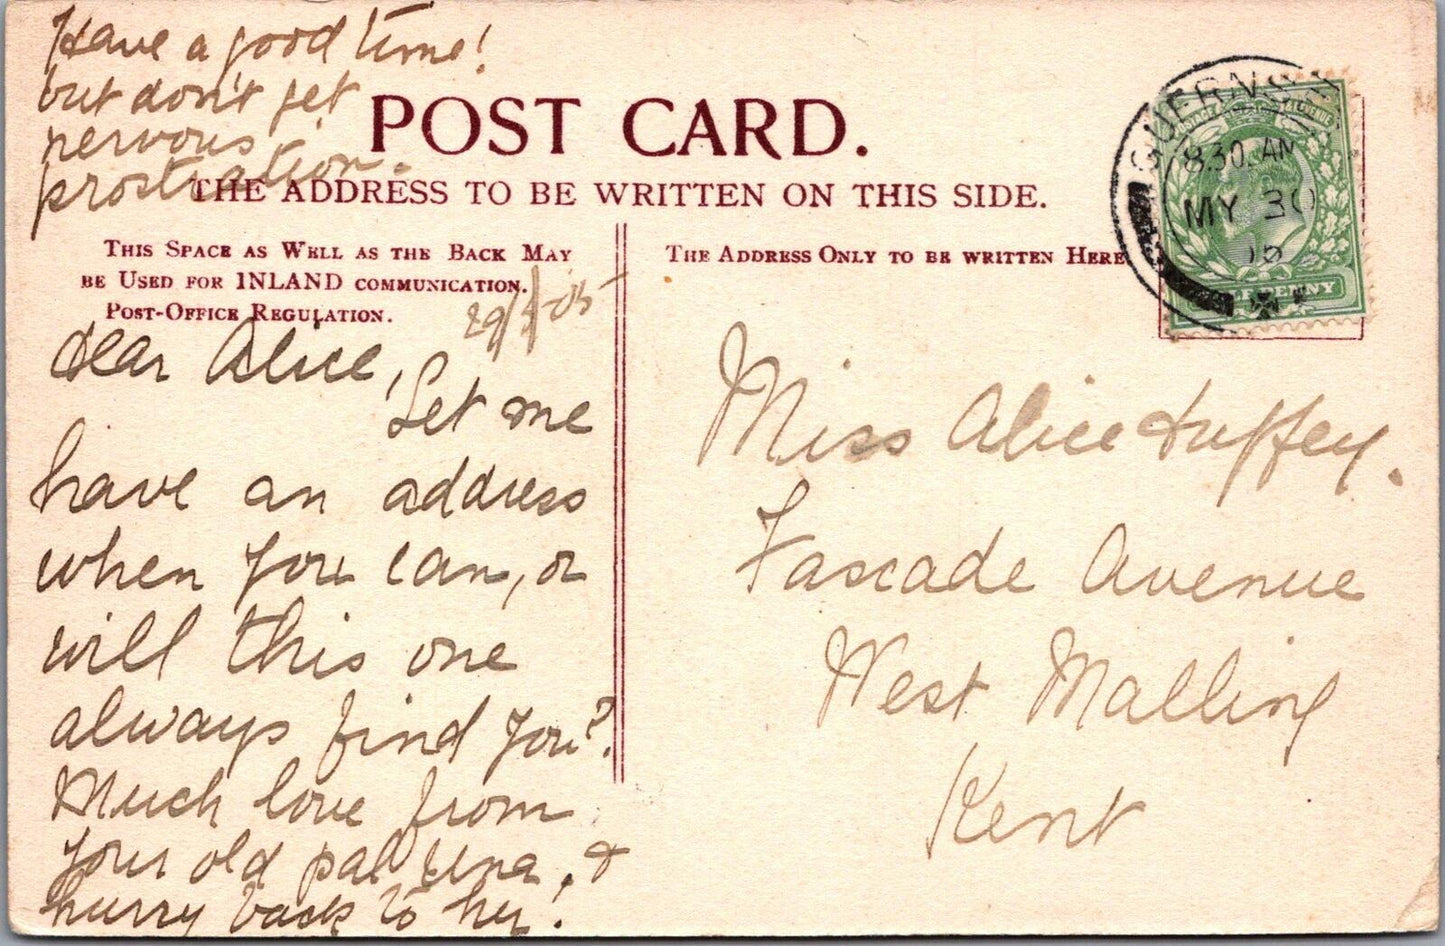 Have a good time!
but don't get
nervous
prostration.
POST CARD.
THE ADDRESS TO BE WRITTEN ON THIS SIDE.
THIS SPACE AS WELL AS THE BACK MAY
BE USED FOR INLAND COMMUNICATION.
POST-OFFICE REGULATION.
THE ADDRESS ONLY TO BE WRITTEN HERE
GUERNSEY
8.30. AM
MY 30
POSTAGE REVENUE
PENNY
29/5-05
Dear Alice,
Let me
have an address
when you can, or
will this one
always find you?
Much love from
your old pal Una, &
hurry back to her!
Miss Alice
Avenue
West Malling
Kent